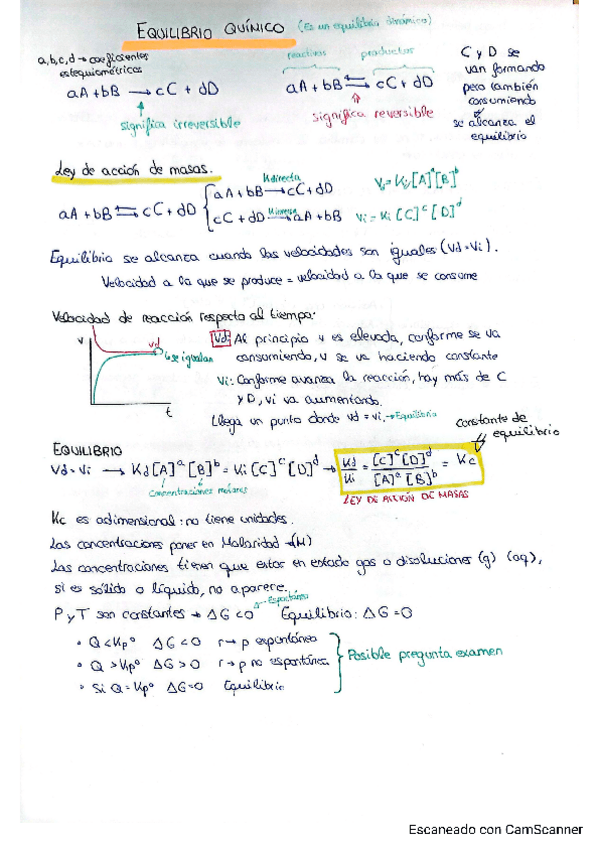 EQUILIBRIO QUÍMICO (Es un equilibrio dinámico)
a, b, c, d → coeficientes estequiométricos
aA + bB → cC + dD
significa irreversible
reactivos productos
aA + bB ⇆ cC + dD
significa reversible
C y D se
van formando
pero también
consumiendo
se alcanza el
equilibrio
Ley de acción de masas.
aA + bB ⇆ cC + dD
Kdirecta
aA + bB → cC + dD
Kinversa
cC + dD → aA + bB
Vd = Kd [A]ᵃ [B]ᵇ
Vi = Ki [C]ᶜ [D]ᵈ
Equilibrio se alcanza cuando las velocidades son iguales (Vd = Vi).
Velocidad a la que se produce = velocidad a la que se consume
Velocidad de reacción respecto al tiempo:
v
vd
se igualan
t
Vd: Al principio v es elevada, conforme se va
consumiendo, v se va haciendo constante
Vi: Conforme avanza la reacción, hay más de C
y D, vi va aumentando.
Llega un punto donde vd = vi. → Equilibrio
constante de
equilibrio
EQUILIBRIO
Vd = Vi → Kd [A]ᵃ [B]ᵇ = Ki [C]ᶜ [D]ᵈ → Kd/Ki = [C]ᶜ [D]ᵈ / [A]ᵃ [B]ᵇ = Kc
concentraciones molares
LEY DE ACCIÓN DE MASAS
Kc es adimensional: no tiene unidades.
Las concentraciones poner en Molaridad → (M)
Las concentraciones tienen que estar en estado gas o disoluciones (g) (aq),
si es sólido o líquido, no aparece.
P y T son constantes → ΔG < 0 → Espontánea Equilibrio: ΔG = 0
• Q < Kp° ΔG < 0 r → p espontánea
• Q > Kp° ΔG > 0 r → p no espontánea
• Si Q = Kp° ΔG = 0 Equilibrio
Posible pregunta examen
Escaneado con CamScanner